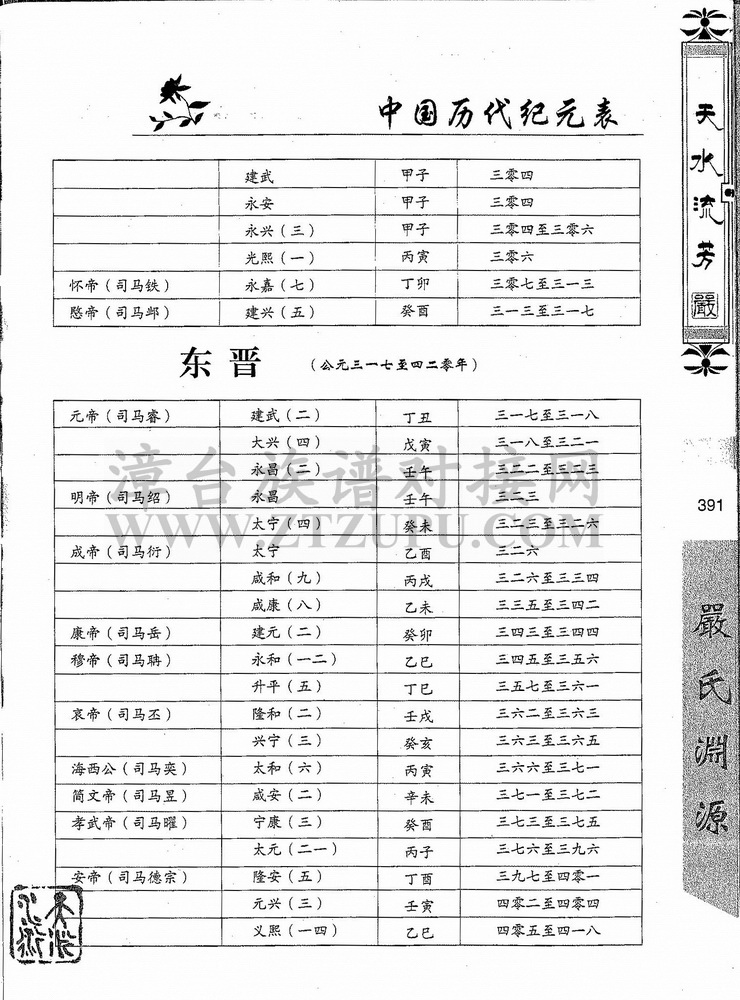 中国历代纪元表
建武 甲子 三零四
永安 甲子 三零四
永兴（三） 甲子 三零四至三零六
光熙（一） 丙寅 三零六
怀帝（司马铁） 永嘉（七） 丁卯 三零七至三一三
愍帝（司马邺） 建兴（五） 癸酉 三一三至三一七
东晋 （公元三一七至四二零年）
元帝（司马睿） 建武（二） 丁丑 三一七至三一八
大兴（四） 戊寅 三一八至三二一
永昌（二） 壬午 三二二至三二三
明帝（司马绍） 永昌 壬午 三二三
太宁（四） 癸未 三二三至三二六
成帝（司马衍） 太宁 乙酉 三二六
咸和（九） 丙戌 三二六至三三四
咸康（八） 乙未 三三五至三四二
康帝（司马岳） 建元（二） 癸卯 三四三至三四四
穆帝（司马聃） 永和（一二） 乙巳 三四五至三五六
升平（五） 丁巳 三五七至三六一
哀帝（司马丕） 隆和（二） 壬戌 三六二至三六三
兴宁（三） 癸亥 三六三至三六五
海西公（司马奕） 太和（六） 丙寅 三六六至三七一
简文帝（司马昱） 咸安（二） 辛未 三七一至三七二
孝武帝（司马曜） 宁康（三） 癸酉 三七三至三七五
太元（二一） 丙子 三七六至三九六
安帝（司马德宗） 隆安（五） 丁酉 三九七至四零一
元兴（三） 壬寅 四零二至四零四
义熙（一四） 乙巳 四零五至四一八
天水流芳
嚴
391
嚴氏淵源
漳台族谱对接网
WWW.ZTZUPU.COM